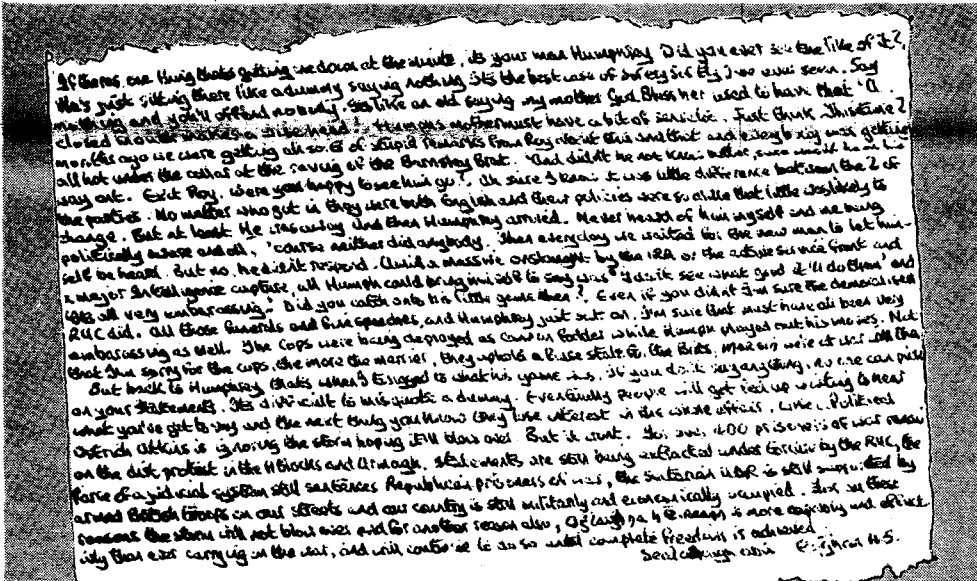 If theres one thing thats getting me down at the minute, its your man Humphrey Did you ever see the like of it?
He's just sitting there like a dummy saying nothing its the best case of I've ever seen. Say
nothing and you'll offend nobody. Its like an old saying my mother God Bless her used to have that 'A
closed mouth makes a wise head'. Humph's mother must have a bit of Just think this time?
months ago we were getting all sorts of stupid remarks from Roy about this and that and everybody was getting
all hot under the collar at the raving of the Barnsley Brat. And didn't he not know better, sure
way out. Exit Roy. Were you happy to see him go? Ah sure I know it was little difference between the 2 of
the parties. No matter who got in they were both English and their policies were so alike that little was likely to
change. But at least He was away and then Humphrey arrived. Never heard of him myself and me being
politically aware and all, 'course neither did anybody. Then everyday we waited for the new man to let him-
self be heard. But no, he didn't respond. Amid a massive onslaught by the IRA on the active service front and
a major Intelligence capture, all Humph could bring himself to say was "I don't see what good it'll do them" and
"its all very embarassing." Did you catch onto his little gems then? Even if you didnt I'm sure the demoralised
RUC did. All those funerals and fine speeches, and Humphrey just sat on. I'm sure that must have all been very
embarassing as well. The cops were being deployed as cannon fodder while Humph played out his moves. Not
that I'm sorry for the cops, the more the merrier, they uphold a Puse State for the Brits, we're at war with them.
But back to Humphrey thats when I twigged to what his game was. If you don't say anything, no one can pick
on your statements. Its difficult to misquote a dummy. Eventually people will get fed up waiting to hear
what you've got to say and the next thing you know they lose interest in the whole affair. Political
Ostrich Atkins is ignoring the storm hoping it'll blow over. But it wont. 400 prisoners of war remain
on the dirt protest in the H Blocks and Armagh, statements are still being extracted under torture by the RUC, the
farce of a judicial system still sentences Republican prisoners of war, the Sectarian UDR is still supported by
armed British troops on our streets and our country is still militarily and economically occupied. For these
reasons the storm will not blow over and for another reason also, Oglaigh na hEireann is more
than ever carrying on the war, and will continue to do so until complete freedom is achieved.
H.5.